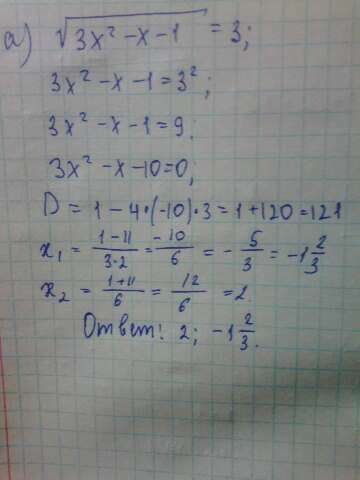 а) √(3x² - x - 1) = 3;
3x² - x - 1 = 3²;
3x² - x - 1 = 9.
3x² - x - 10 = 0;
D = 1 - 4·(-10)·3 = 1 + 120 = 121
x₁ = (1 - 11)/(3·2) = -10/6 = -5/3 = -1 2/3
x₂ = (1 + 11)/6 = 12/6 = 2.
Ответ: 2; -1 2/3.